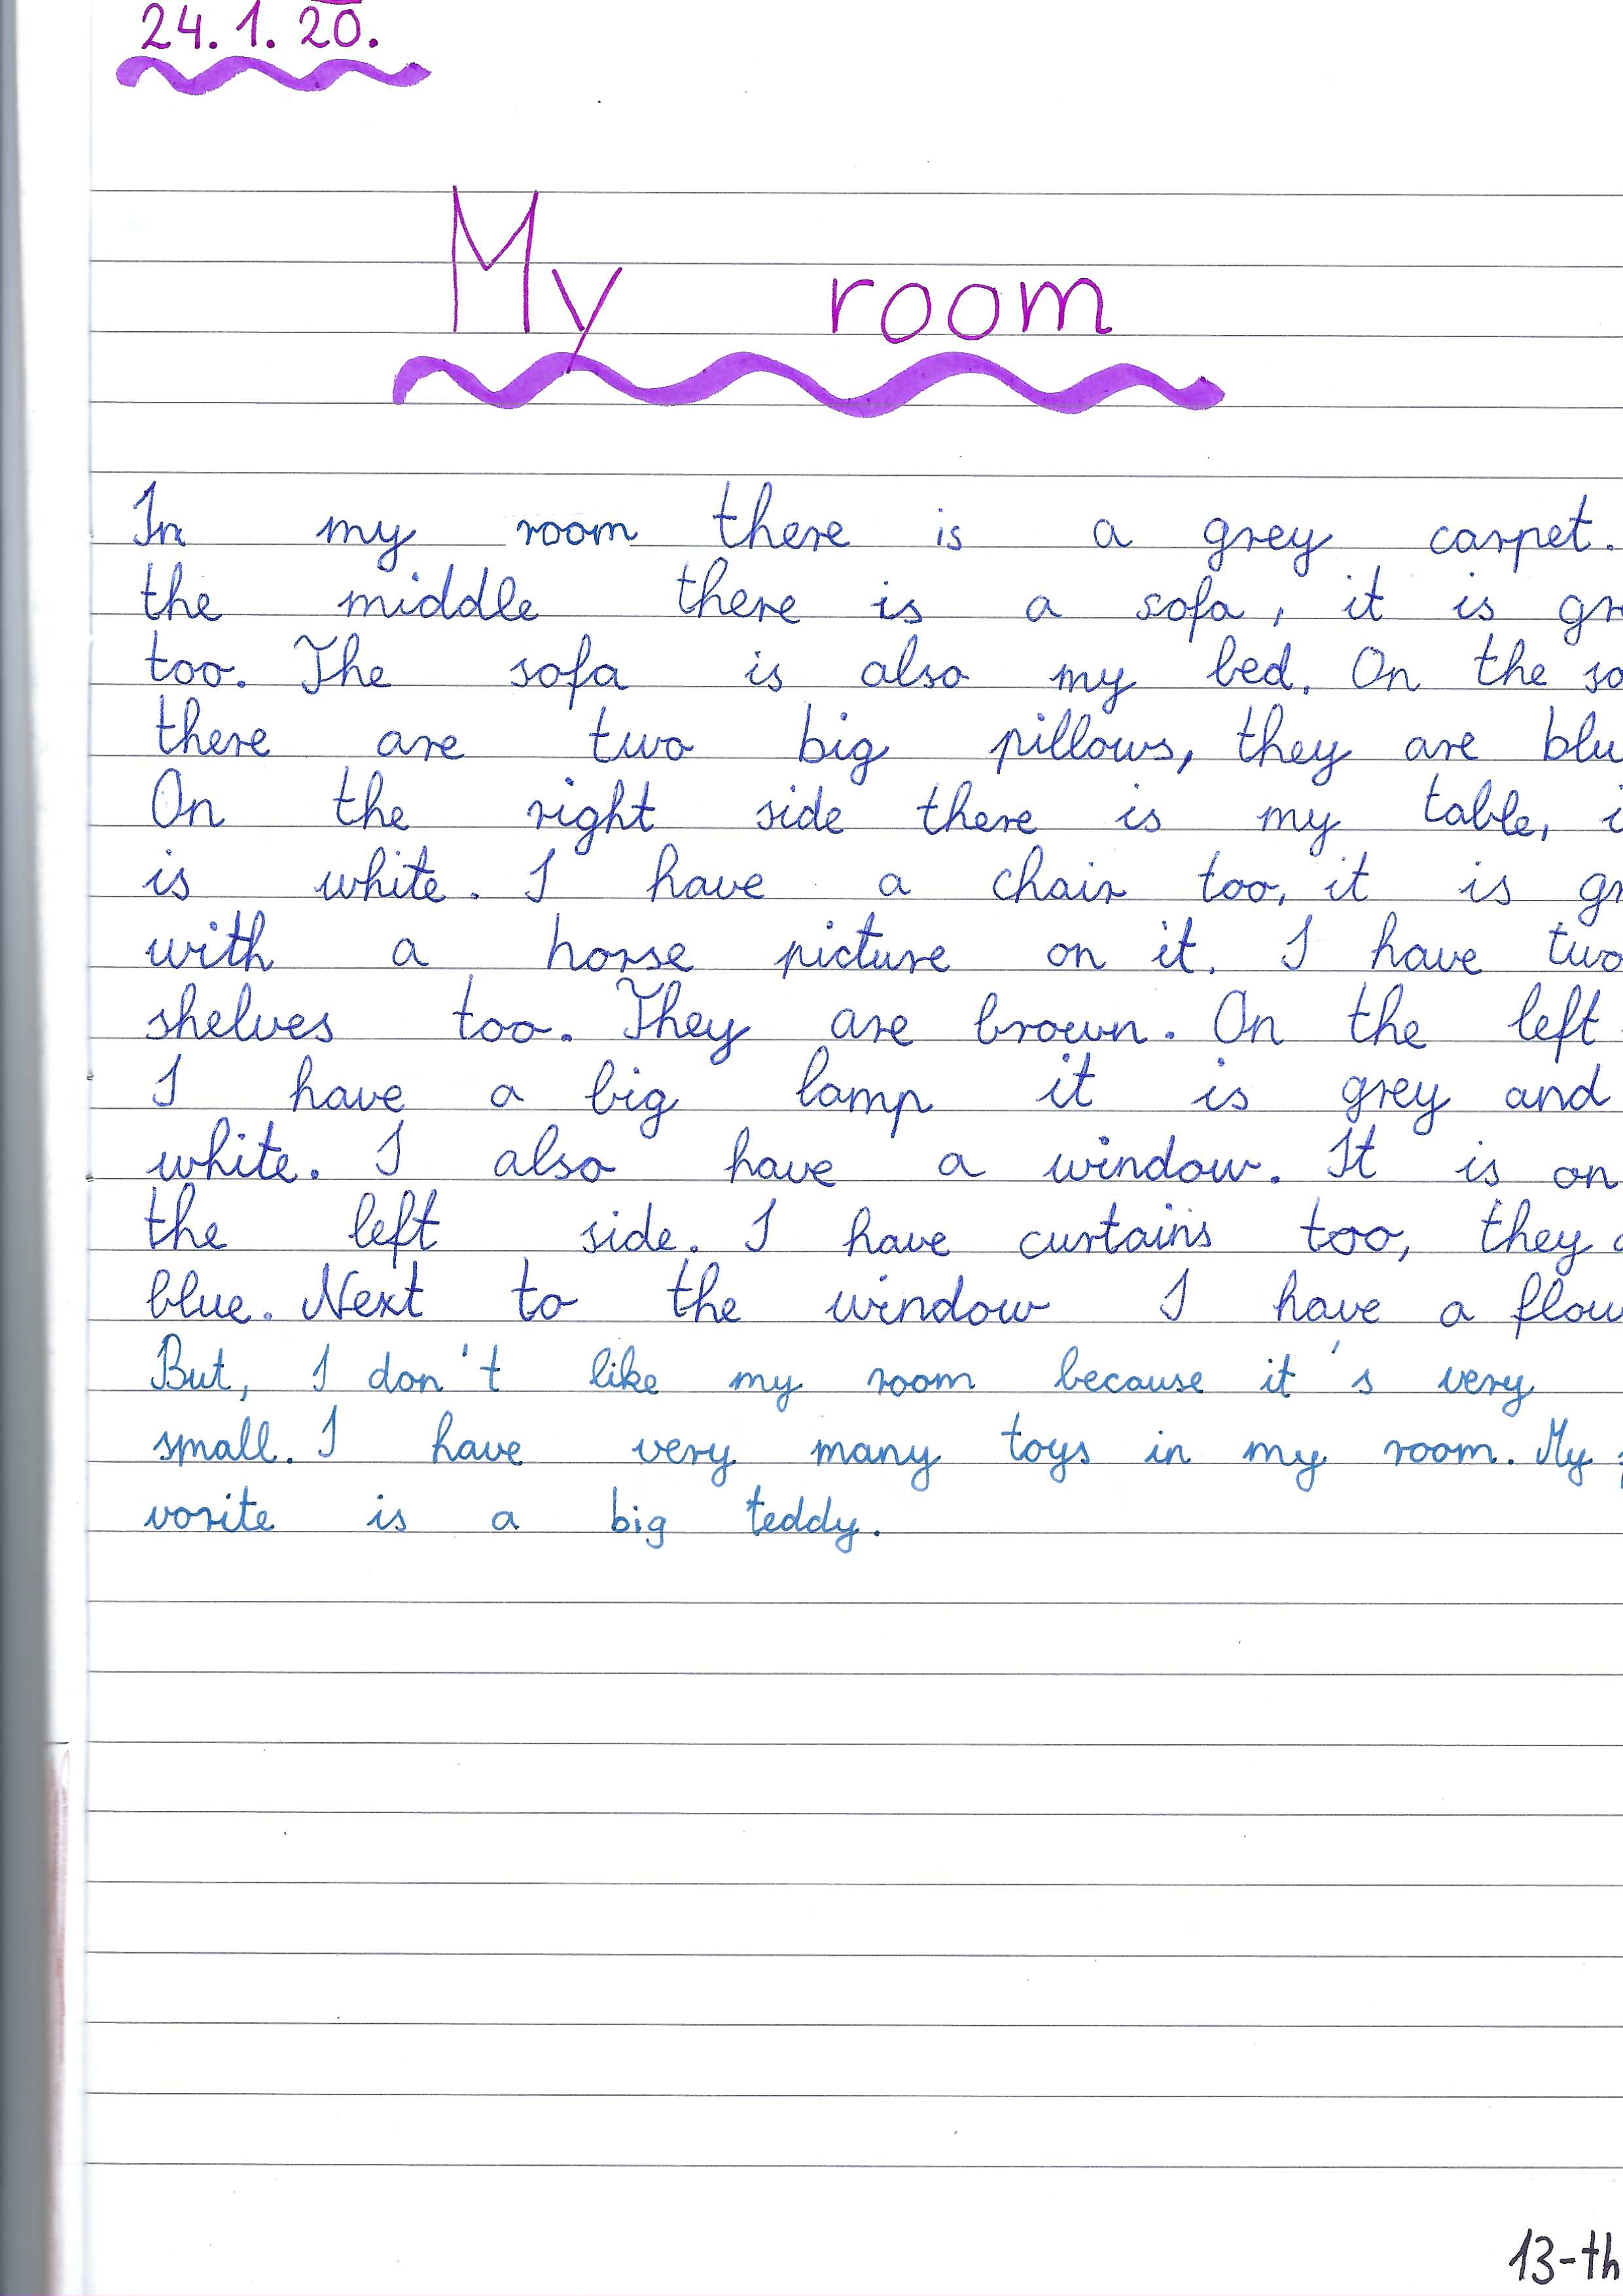 24. 1. 20.
My room
In my room there is a grey carpet.
the middle there is a sofa, it is gr
too. The sofa is also my bed. On the so
there are two big pillows, they are blu
On the right side there is my table, i
is white. I have a chair too, it is gr
with a horse picture on it. I have two
shelves too. They are brown. On the left
I have a big lamp it is grey and
white. I also have a window. It is on
the left side. I have curtains too, they
blue. Next to the window I have a flow
But, I don't like my room because it's very
small. I have very many toys in my room. My
vorite is a big teddy.
13-th